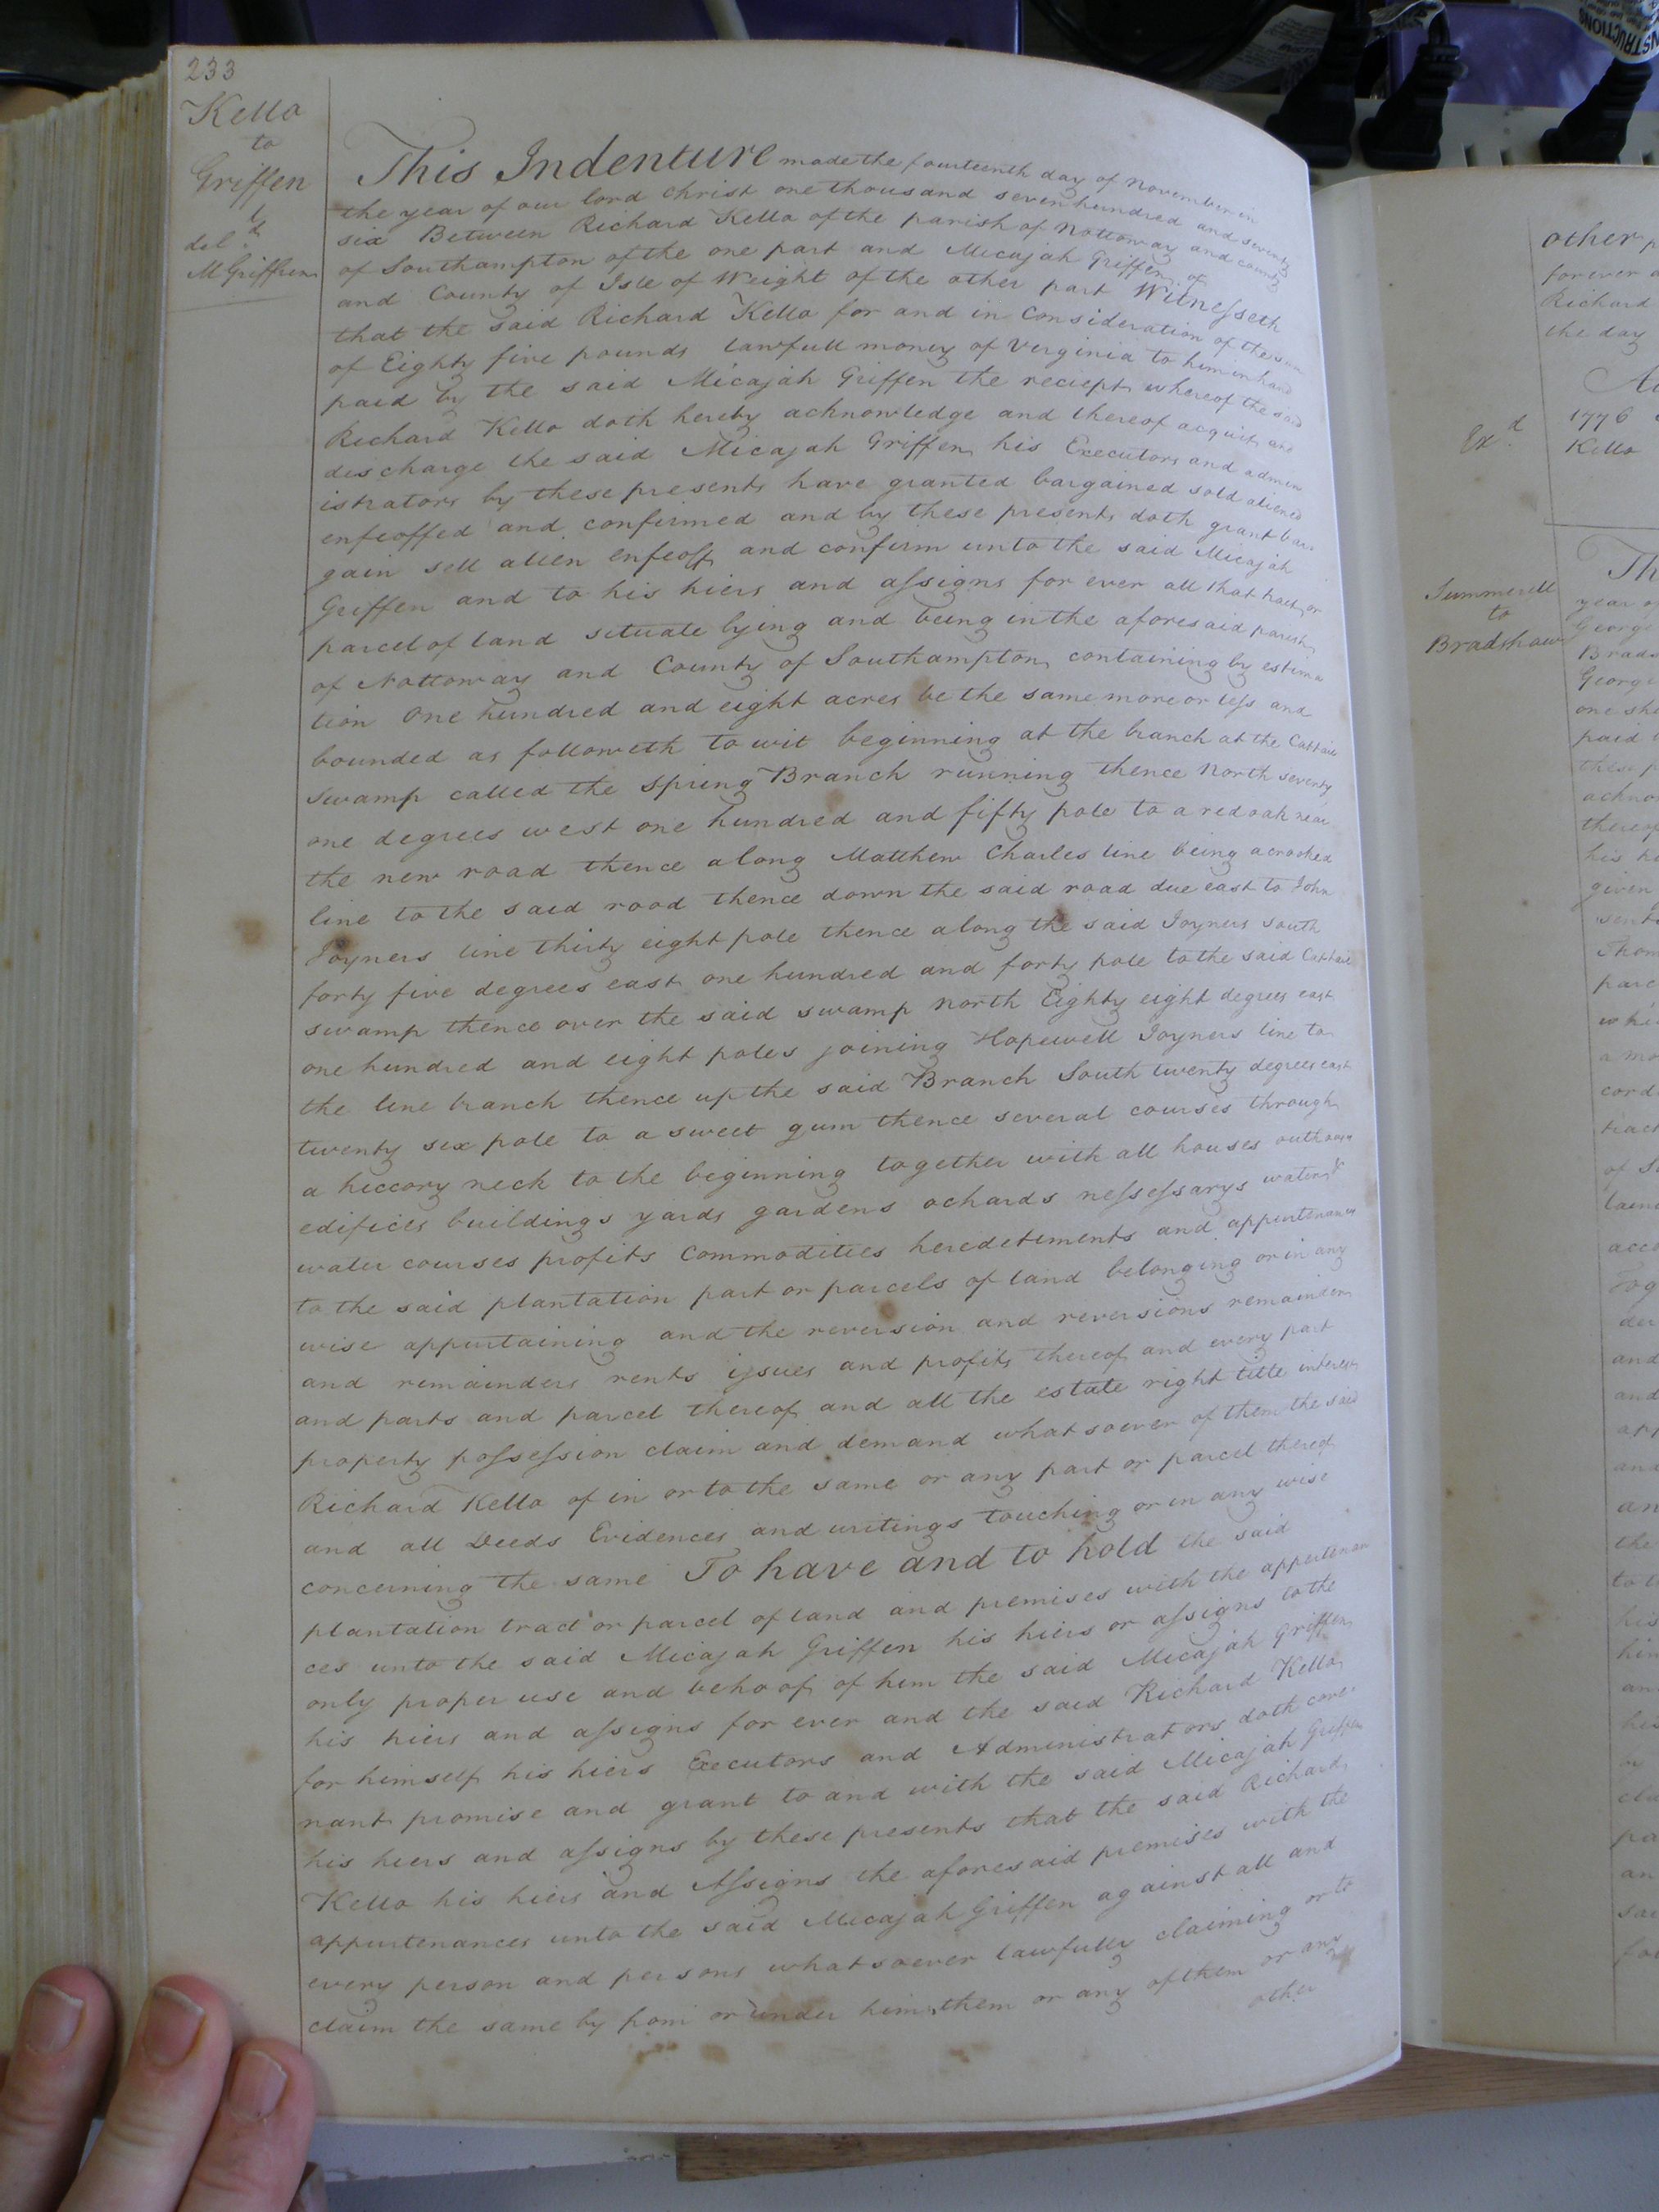 233
Kello
to
Griffen
del.d
M Griffen
This Indenture made the fourteenth day of November in
the year of our lord Christ one thousand seven hundred and seventy
six Between Richard Kello of the parish of Nottoway and county
of Southampton of the one part and Micajah Griffen of
and County of Isle of Weight of the other part Witnesseth
that the said Richard Kello for and in Consideration of the sum
of Eighty five pounds lawfull money of Verginia to him in hand
paid by the said Micajah Griffen the reciept whereof the said
Richard Kello doth hereby acknowledge and thereof acquit and
discharge the said Micajah Griffen his Executors and admin
istrators by these presents have granted bargained sold aliened
enfeoffed and confirmed and by these presents doth grant bar
gain sell alien enfeoff and confirm unto the said Micajah
Griffen and to his hiers and assigns for ever all that tract or
parcel of land situate lying and being in the aforesaid parish
of Nottoway and County of Southampton containing by estima
tion One hundred and eight acres be the same more or less and
bounded as followeth to wit beginning at the branch at the Cattail
Swamp called the Spring Branch running thence North seventy
one degrees west one hundred and fifty pole to a red oak near
the new road thence along Matthew Charles line being a crooked
line to the said road thence down the said road due east to John
Joyners line thirty eight pole thence along the said Joyners South
forty five degrees east one hundred and forty pole to the said Cattail
swamp thence over the said swamp North Eighty eight degrees east
one hundred and eight poles joining Hopewell Joyners line to
the line branch thence up the said Branch South twenty degrees east
twenty six pole to a sweet gum thence several courses through
a hiccory neck to the beginning together with all houses outhouses
edifices buildings yards gardens ochards nessessarys waters
water courses profits Commodities heredetements and appurtenances
to the said plantation part or parcels of land belonging or in any
wise appurtaining and the reversion and reversions remainder
and remainders rents issues and profits thereof and every part
and parts and parcel thereof and all the estate right title interest
property possession claim and demand whatsoever of them the said
Richard Kello of in or to the same or any part or parcel thereof
and all Deeds Evidences and writings touching or in any wise
concerning the same To have and to hold the said
plantation tract or parcel of land and premises with the appertenan
ces unto the said Micajah Griffen his hiers or assigns to the
only proper use and behoof of him the said Micajah Griffen
his hiers and assigns for ever and the said Richard Kello
for himself his hiers Executors and Administrators doth cove
nant promise and grant to and with the said Micajah Griffen
his hiers and assigns by these presents that the said Richard
Kello his hiers and Assigns the aforesaid premises with the
appurtenances unto the said Micajah Griffen against all and
every person and persons whatsoever lawfully claiming or to
claim the same by from or under him them or any of them or any
other
other
forever
Richard
the day
1776
Ex.d
Kello
Summerell
to
Bradshaw
year of
George
George
paid